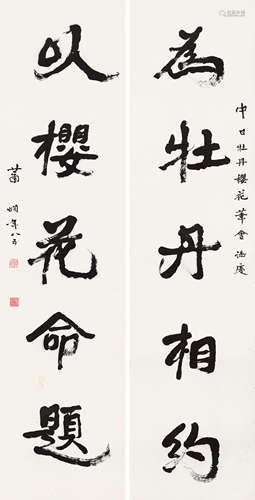 為牡丹相約
中日牡丹櫻花筆會誌慶
以櫻花命題
蕭嫻年八五